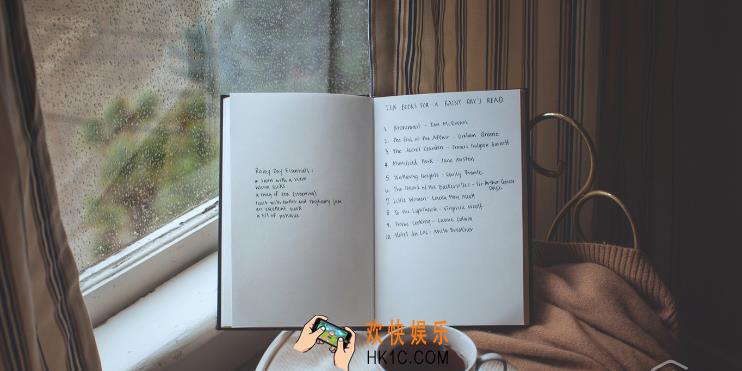 Rainy Day Essentials:
a room with a view
warm socks
a mug of tea (steaming)
toast with butter and raspberry jam
an excellent book
a bit of patience
TEN BOOKS FOR A RAINY DAY'S READ
1. Atonement - Ian McEwan
2. The End of the Affair - Graham Greene
3. The Secret Garden - Frances Hodgson Burnett
4. Mansfield Park - Jane Austen
5. Wuthering Heights - Emily Bronte
6. The Hound of the Baskervilles - Sir Arthur Conan
Doyle
7. Little Women - Louisa May Alcott
8. To the Lighthouse - Virginia Woolf
9. Home Cooking - Laurie Colwin
10. Hotel du Lac - Anita Brookner
欢快娱乐
HK1C.COM